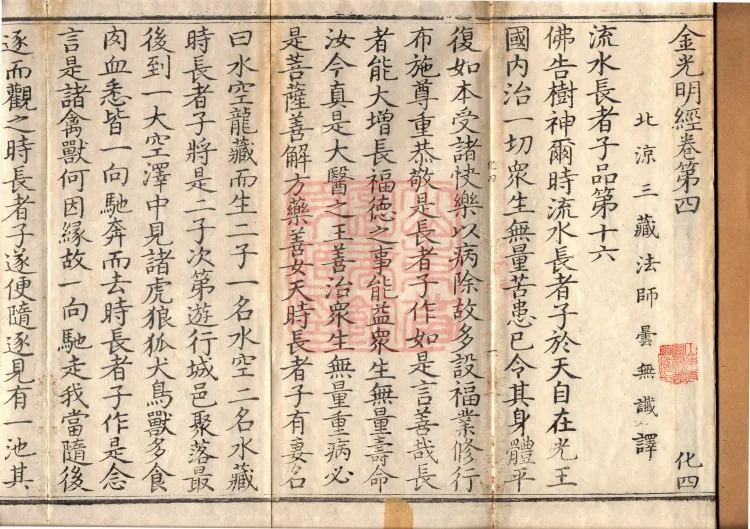 金光明經卷第四
化四
北涼三藏法師曇無讖譯
流水長者子品第十六
佛告樹神爾時流水長者子於天自在光王
國內治一切衆生無量苦患已令其身體平
復如本受諸快樂以病除故多設福業修行
布施尊重恭敬是長者子作如是言善哉長
者能大增長福德之事能益衆生無量壽命
汝今真是大醫之王善治衆生無量重病必
是菩薩善解方藥善女天時長者子有妻名
曰水空龍藏而生二子一名水空二名水藏
時長者子將是二子次第遊行城邑聚落最
後到一大空澤中見諸虎狼狐犬鳥獸多食
肉血悉皆一向馳奔而去時長者子作是念
言是諸禽獸何因緣故一向馳走我當隨後
逐而觀之時長者子遂便隨逐見有一池其